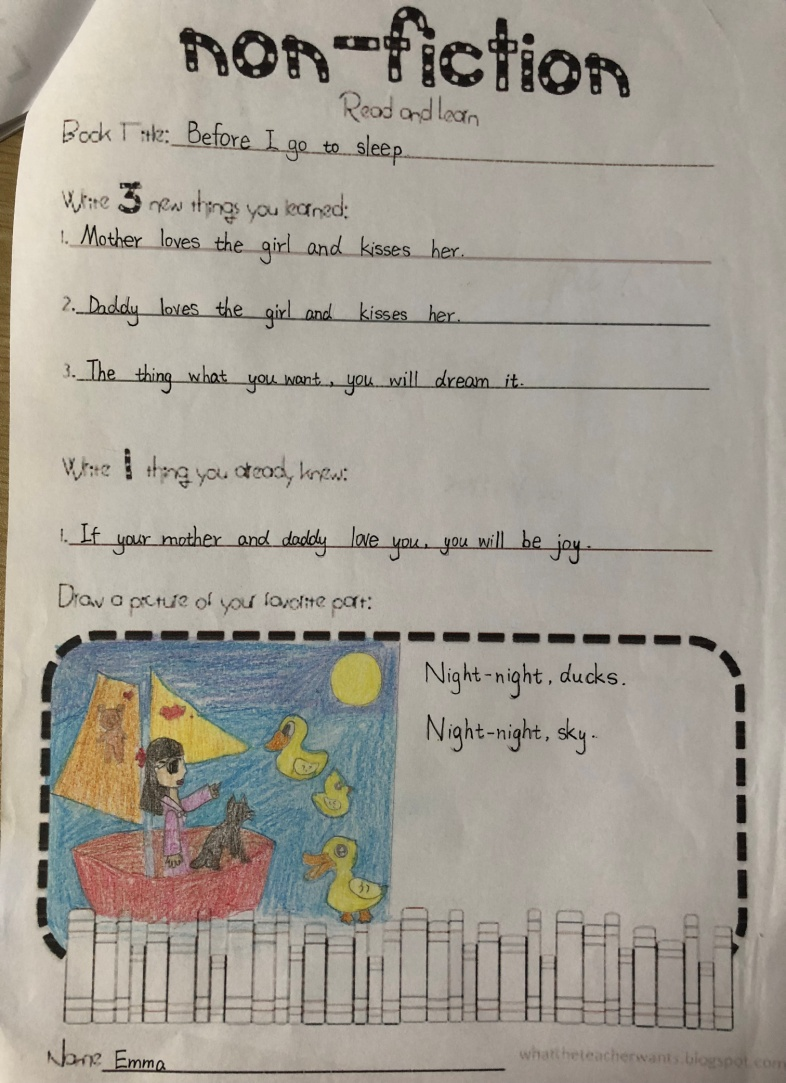 non-fiction
Read and learn
Book Title: Before I go to sleep
Write 3 new things you learned:
1. Mother loves the girl and kisses her.
2. Daddy loves the girl and kisses her.
3. The thing what you want, you will dream it.
Write 1 thing you already knew:
1. If your mother and daddy love you, you will be joy.
Draw a picture of your favorite part:
Night-night, ducks.
Night-night, sky.
Name Emma
whattheteacherwants.blogspot.com